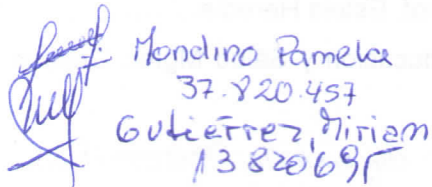 Mondino Pamela
37.820.457
Gutierrez, Miriam
13820695